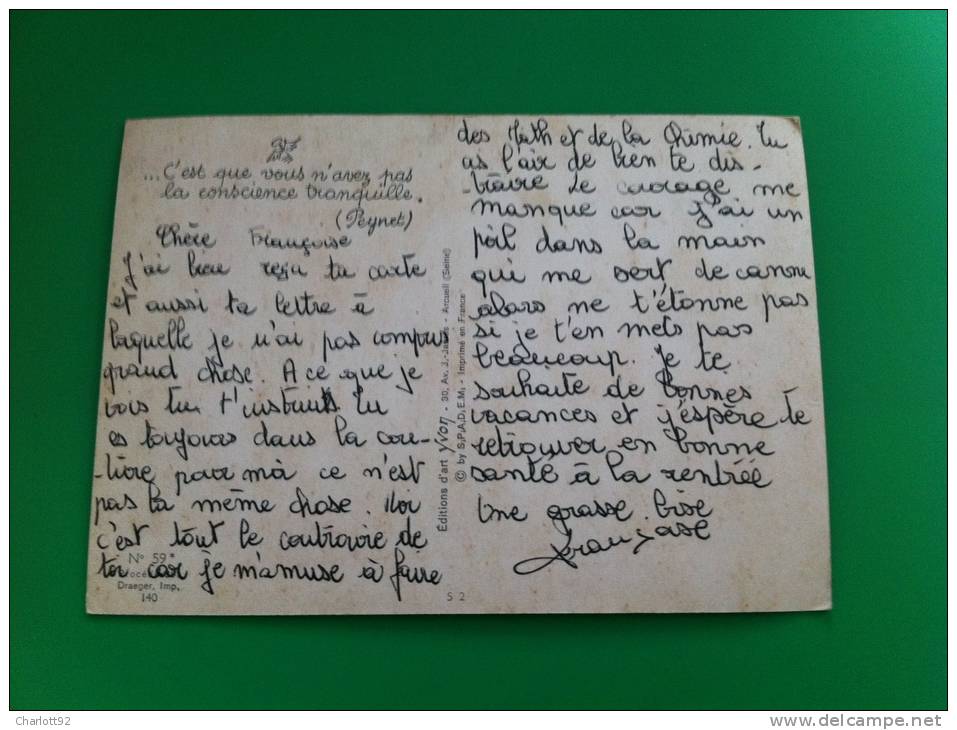 ... C'est que vous n'avez pas
la conscience tranquille.
(Peynet)
Chère Françoise
J'ai bien reçu ta carte
et aussi ta lettre à
laquelle je n'ai pas compris
grand chose. A ce que je
vois tu t'instruits tu
es toujours dans la cou-
-ture pour moi ce n'est
pas la même chose. Moi
c'est tout le contraire de
toi car je m'amuse à faire
N° 59
Draeger, Imp.
140
Éditions d'art Yvon - 30, Av. J.-Jaurès - Arcueil (Seine)
© by S.P.A.D.E.M. - Imprimé en France
S 2
des Math et de la Chimie. Tu
as l'air de bien te dis-
-traire Le courage me
manque car j'ai un
poil dans la main
qui me sert de canne
alors ne t'étonne pas
si je t'en mets pas
beaucoup. Je te
souhaite de bonnes
vacances et j'espère te
retrouver en bonne
santé à la rentrée
Une grosse bise
Françoise
Charlott92
http://www.delcampe.net